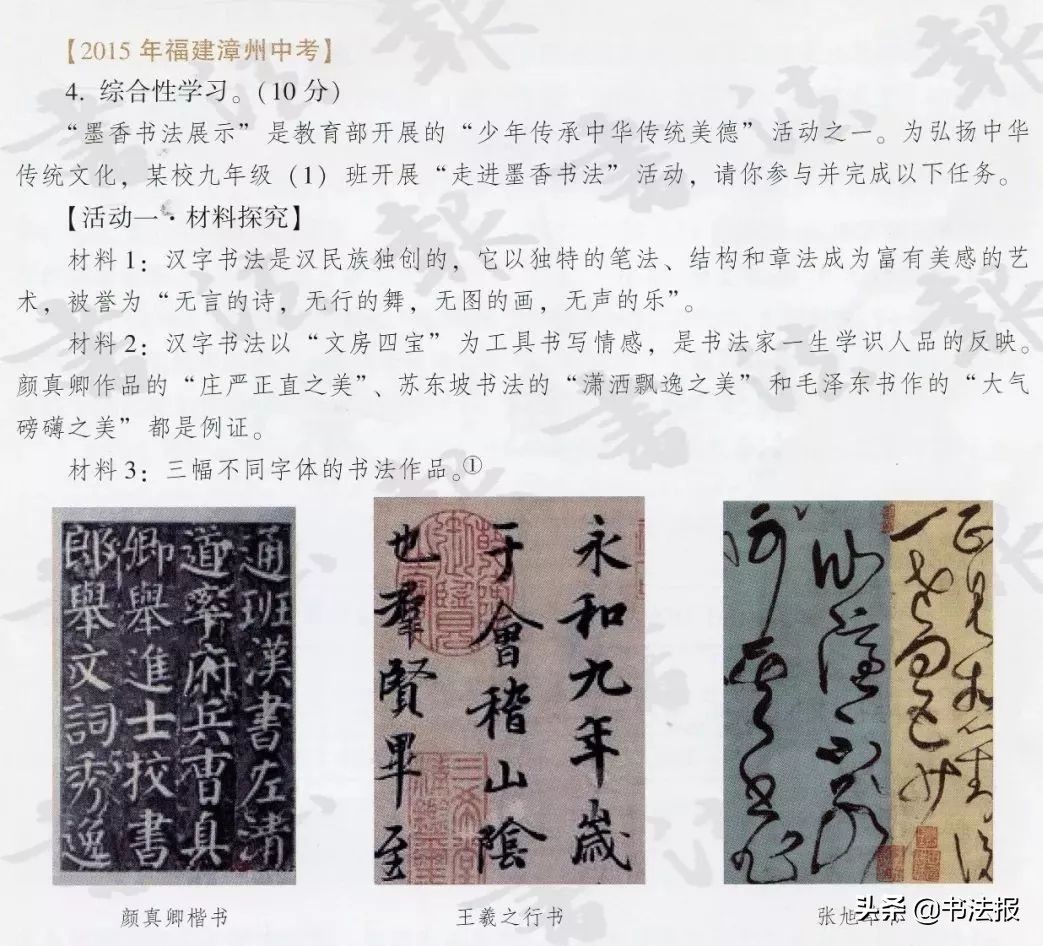 【2015 年福建漳州中考】
4. 综合性学习。(10 分)
“墨香书法展示”是教育部开展的“少年传承中华传统美德”活动之一。为弘扬中华
传统文化，某校九年级（1）班开展“走进墨香书法”活动，请你参与并完成以下任务。
【活动一·材料探究】
材料1：汉字书法是汉民族独创的，它以独特的笔法、结构和章法成为富有美感的艺
术，被誉为“无言的诗，无行的舞，无图的画，无声的乐”。
材料2：汉字书法以“文房四宝”为工具书写情感，是书法家一生学识人品的反映。
颜真卿作品的“庄严正直之美”、苏东坡书法的“潇洒飘逸之美”和毛泽东书作的“大气
磅礴之美”都是例证。
材料3：三幅不同字体的书法作品。①
通班漢書左清
道率府兵曹真
卿舉進士校書
郎舉文詞秀逸
永和九年歲
于會稽山陰
也羣賢畢至
颜真卿楷书
王羲之行书
张旭
头条 @书法报